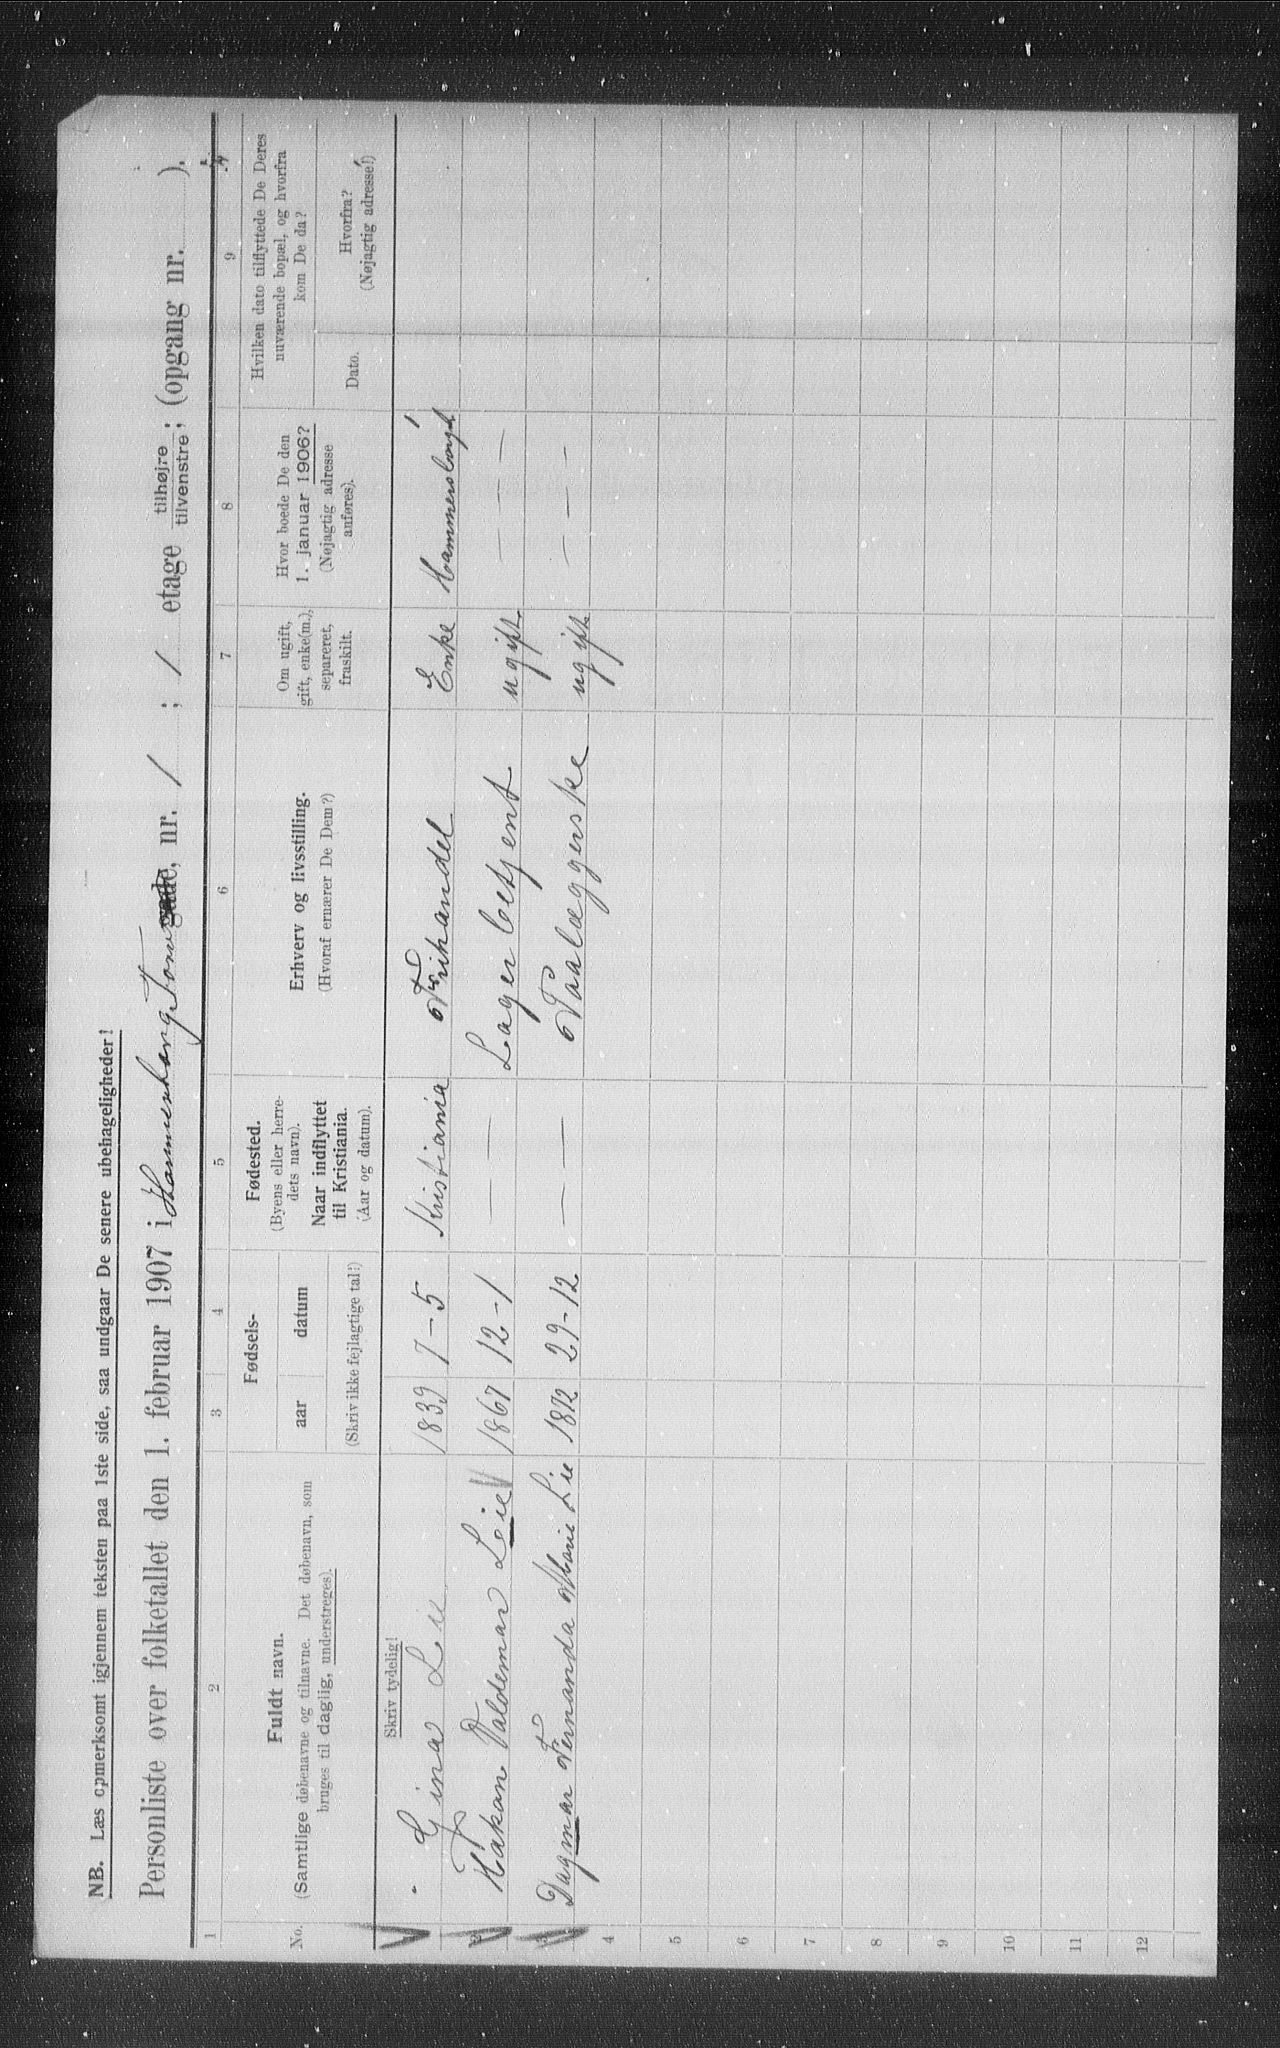 NB. Læs opmerksomt igjennem teksten paa 1ste side, saa undgaar De senere ubehageligheder!
Personliste over folketallet den 1. februar 1907 i Hammersborg Torv gade, nr. 1 ; 1 etage tilhøjre tilvenstre; (opgang nr. ).
1 2 3 4 5 6 7 8 9
No.
Fuldt navn.
(Samtlige døbenavne og tilnavne. Det døbenavn, som
bruges til daglig, understreges).
Skriv tydelig!
Fødsels-
aar datum
(Skriv ikke fejlagtige tal!)
Fødested.
(Byens eller herre-
dets navn).
Naar indflyttet
til Kristiania.
(Aar og datum).
Erhverv og livsstilling.
(Hvoraf ernærer De Dem?)
Om ugift,
gift, enke(m.),
separeret,
fraskilt.
Hvor boede De den
1. januar 1906?
(Nøjagtig adresse
anføres).
Hvilken dato tilflyttede De Deres
nuværende bopæl, og hvorfra
kom De da?
Dato.
Hvorfra?
(Nøjagtig adresse!)
Gina Lie 1839 7-5 Kristiania Frihandel Enke Hammersborgt 1
2 Hakan Valdemar Lie 1867 12-1 — — Lagerbetjent ugift — — —
3 Dagmar Fernanda Marie Lie 1872 29-12 — — Paalæggerske ugift — — —
4
5
6
7
8
9
10
11
12